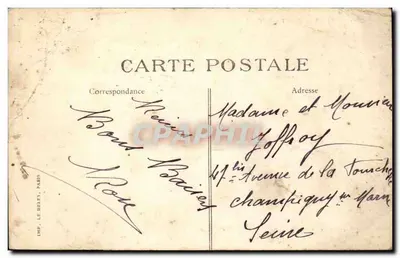 CARTE POSTALE
Correspondance
Adresse
Bons Baisers
Madame et Monsieur
Joffroy
47 bis Avenue de la
champigny s/ Marne
Seine
CPAPHIL
IMP. LE DELEY, PARIS